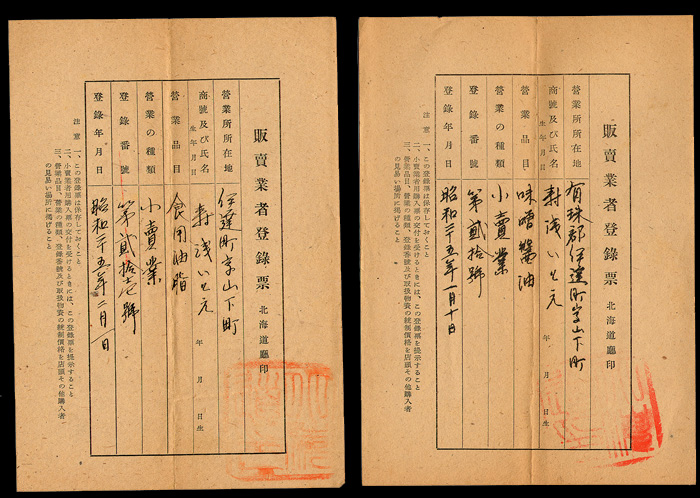 販賣業者登錄票 北海道廳印
營業所所在地 有珠郡伊達町字山下町
商號及び氏名 寿浅いせ元
生年月日 年 月 日生
營業品目 味噌醬油
營業の種類 小賣業
登錄番號 第貳拾號
登錄年月日 昭和二十五年一月十日
注意 一、この登錄票は保存しておくこと
二、小賣業者用購入票の交付を受けるときには、この登錄票を提示すること
三、營業品目、營業の種類、登錄番號及び取扱物資の統制價格を店頭その他購入者
の見易い場所に掲げること
販賣業者登錄票 北海道廳印
營業所所在地 伊達町字山下町
商號及び氏名 寿浅いせ元
生年月日 年 月 日生
營業品目 食用油脂
營業の種類 小賣業
登錄番號 第貳拾壱號
登錄年月日 昭和二十五年二月一日
注意 一、この登錄票は保存しておくこと
二、小賣業者用購入票の交付を受けるときには、この登錄票を提示すること
三、營業品目、營業の種類、登錄番號及び取扱物資の統制價格を店頭その他購入者
の見易い場所に掲げること